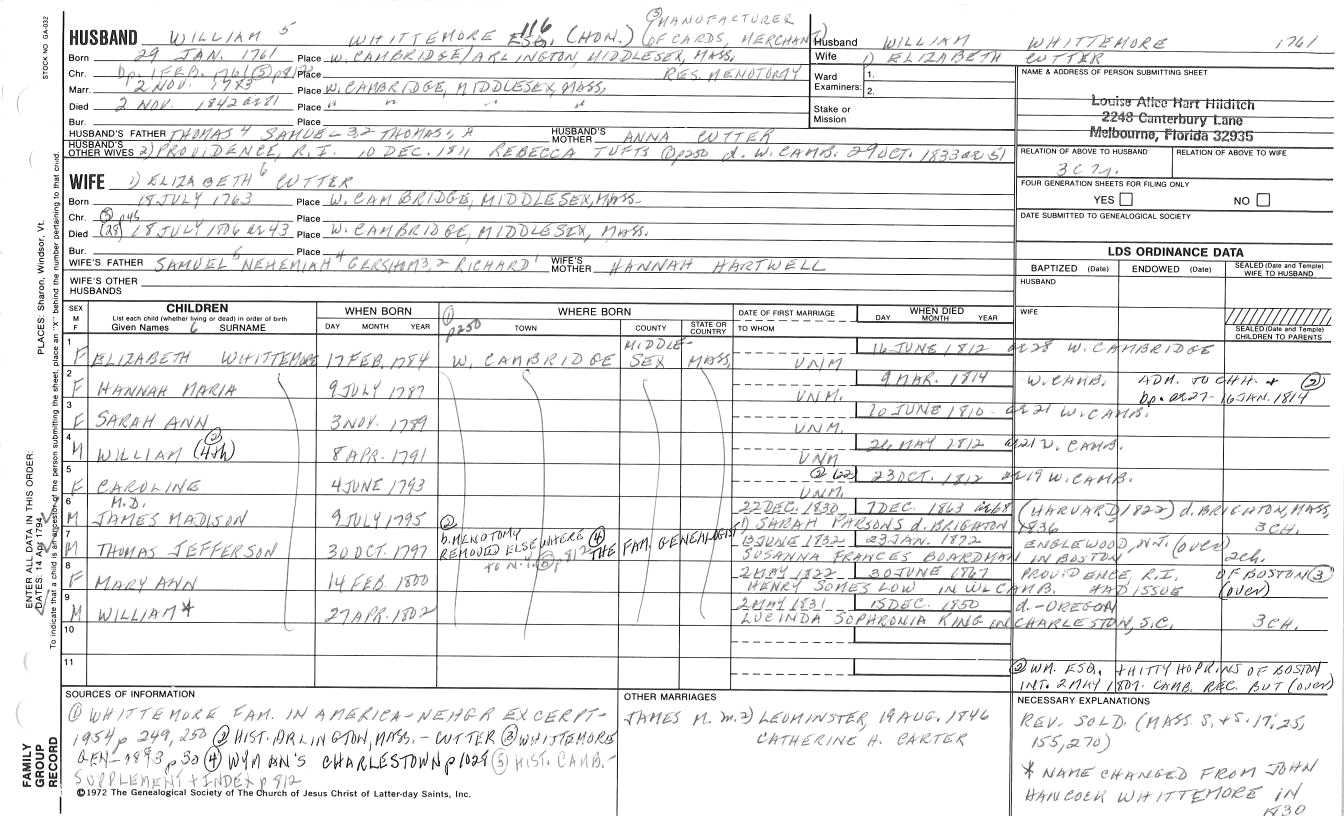 STOCK NO. GA-032
③MANUFACTURER
HUSBAND WILLIAM 5 WHITTEMORE ESQ. 116 (HON.) (OF CARDS, MERCHANT)
Born 29 JAN. 1761 Place W. CAMBRIDGE/ARLINGTON, MIDDLESEX, MASS.
Chr. bp. 1 FEB. 1761 ⑤ p812 Place RES. MENOTOMY
Marr. 2 NOV. 1783 Place W. CAMBRIDGE, MIDDLESEX, MASS.
Died 2 NOV. 1842 ae 81 Place " " " "
Bur. Place
HUSBAND'S FATHER THOMAS 4 SAMUEL 3,2 THOMAS 1, HUSBAND'S MOTHER ANNA CUTTER
HUSBAND'S OTHER WIVES 2) PROVIDENCE, R.I. 10 DEC. 1811 REBECCA TUFTS ① p250 d. W. CAMB. 29 OCT. 1833 ae 51
WIFE 1) ELIZABETH 6 CUTTER
Born 18 JULY 1763 Place W. CAMBRIDGE, MIDDLESEX, MASS.
Chr. ③ p45 Place
Died (28) 18 JULY 1806 ae 43 Place W. CAMBRIDGE, MIDDLESEX, MASS.
Bur. Place
WIFE'S FATHER SAMUEL 5 NEHEMIAH 4 GERSHOM 3,2 RICHARD 1 WIFE'S MOTHER HANNAH HARTWELL
WIFE'S OTHER HUSBANDS
Husband WILLIAM WHITTEMORE 1761
Wife 1) ELIZABETH CUTTER
Ward Examiners: 1.
2.
Stake or Mission
NAME & ADDRESS OF PERSON SUBMITTING SHEET
Louise Alice Hart Hilditch
2248 Canterbury Lane
Melbourne, Florida 32935
RELATION OF ABOVE TO HUSBAND RELATION OF ABOVE TO WIFE
3C7r.
FOUR GENERATION SHEETS FOR FILING ONLY
YES NO
DATE SUBMITTED TO GENEALOGICAL SOCIETY
LDS ORDINANCE DATA
BAPTIZED (Date) ENDOWED (Date) SEALED (Date and Temple) WIFE TO HUSBAND
HUSBAND
WIFE
SEALED (Date and Temple) CHILDREN TO PARENTS
SEX M F
CHILDREN
List each child (whether living or dead) in order of birth
Given Names 6 SURNAME
WHEN BORN
DAY MONTH YEAR
① p250
WHERE BORN
TOWN COUNTY STATE OR COUNTRY
DATE OF FIRST MARRIAGE
TO WHOM
WHEN DIED
DAY MONTH YEAR
1 F ELIZABETH WHITTEMORE 17 FEB. 1784 W. CAMBRIDGE MIDDLESEX MASS. UNM 16 JUNE 1812 ae 28 W. CAMBRIDGE
2 F HANNAH MARIA 9 JULY 1787 UNM. 9 MAR. 1814 W. CAMB. ADM. TO CHH. + ② bp. ae 27 - 16 JAN. 1814
3 F SARAH ANN 3 NOV. 1789 UNM. 10 JUNE 1810 - ae 21 W. CAMB.
4 M WILLIAM ② (4th) 8 APR. 1791 UNM 26 MAY 1812 ae 21 W. CAMB.
5 F CAROLINE 4 JUNE 1793 UNM. ② (22) 23 OCT. 1812 ae 19 W. CAMB.
6 M M.D. JAMES MADISON 9 JULY 1795 22 DEC. 1830 7 DEC. 1863 ae 68 (HARVARD, 1822) d. BRIGHTON, MASS.
1) SARAH PARSONS d. BRIGHTON 1836 3 CH.
7 M THOMAS JEFFERSON 30 OCT. 1797 ② b. MENOTOMY REMOVED ELSEWHERE TO N.Y. ⑤ p812 ④ THE FAM. GENEALOGIST 13 JUNE 1832 23 JAN. 1872 ENGLEWOOD, N.J. (over)
SUSANNA FRANCES BOARDMAN IN BOSTON 2ch.
8 F MARY ANN 14 FEB. 1800 2 MAY 1822 30 JUNE 1867 PROVIDENCE, R.I. OF BOSTON ③
HENRY SOMES LOW IN W. CAMB. HAD ISSUE (over)
9 M WILLIAM* 27 APR. 1802 2 MAY 1831 15 DEC. 1850 d. - OREGON
LUCINDA SOPHRONIA KING IN CHARLESTON, S.C. 3 CH.
10
11
② WM. ESQ. + HITTY HOPKINS OF BOSTON
INT. 2 MAY 1807. CAMB. REC. BUT (over)
SOURCES OF INFORMATION
① WHITTEMORE FAM. IN AMERICA - NEHGR EXCERPT-
1954 p 249, 250 ② HIST. ARLINGTON, MASS. - CUTTER ③ WHITTEMORE
GEN - 1893 p 30 ④ WYMAN'S CHARLESTOWN p 1029 ⑤ HIST. CAMB. -
SUPPLEMENT + INDEX p 812
©1972 The Genealogical Society of The Church of Jesus Christ of Latter-day Saints, Inc.
OTHER MARRIAGES
JAMES M. m. 2) LEOMINSTER, 19 AUG. 1846
CATHERINE H. CARTER
NECESSARY EXPLANATIONS
REV. SOLD. (MASS. S. + S. 17; 25,
155, 270)
* NAME CHANGED FROM JOHN
HANCOCK WHITTEMORE IN
1830
PLACES: Sharon, Windsor, Vt.
ENTER ALL DATA IN THIS ORDER:
DATES: 14 Apr 1794
To indicate that a child is an ancestor of the person submitting the sheet, place an "X" behind the number pertaining to that child.
FAMILY GROUP RECORD